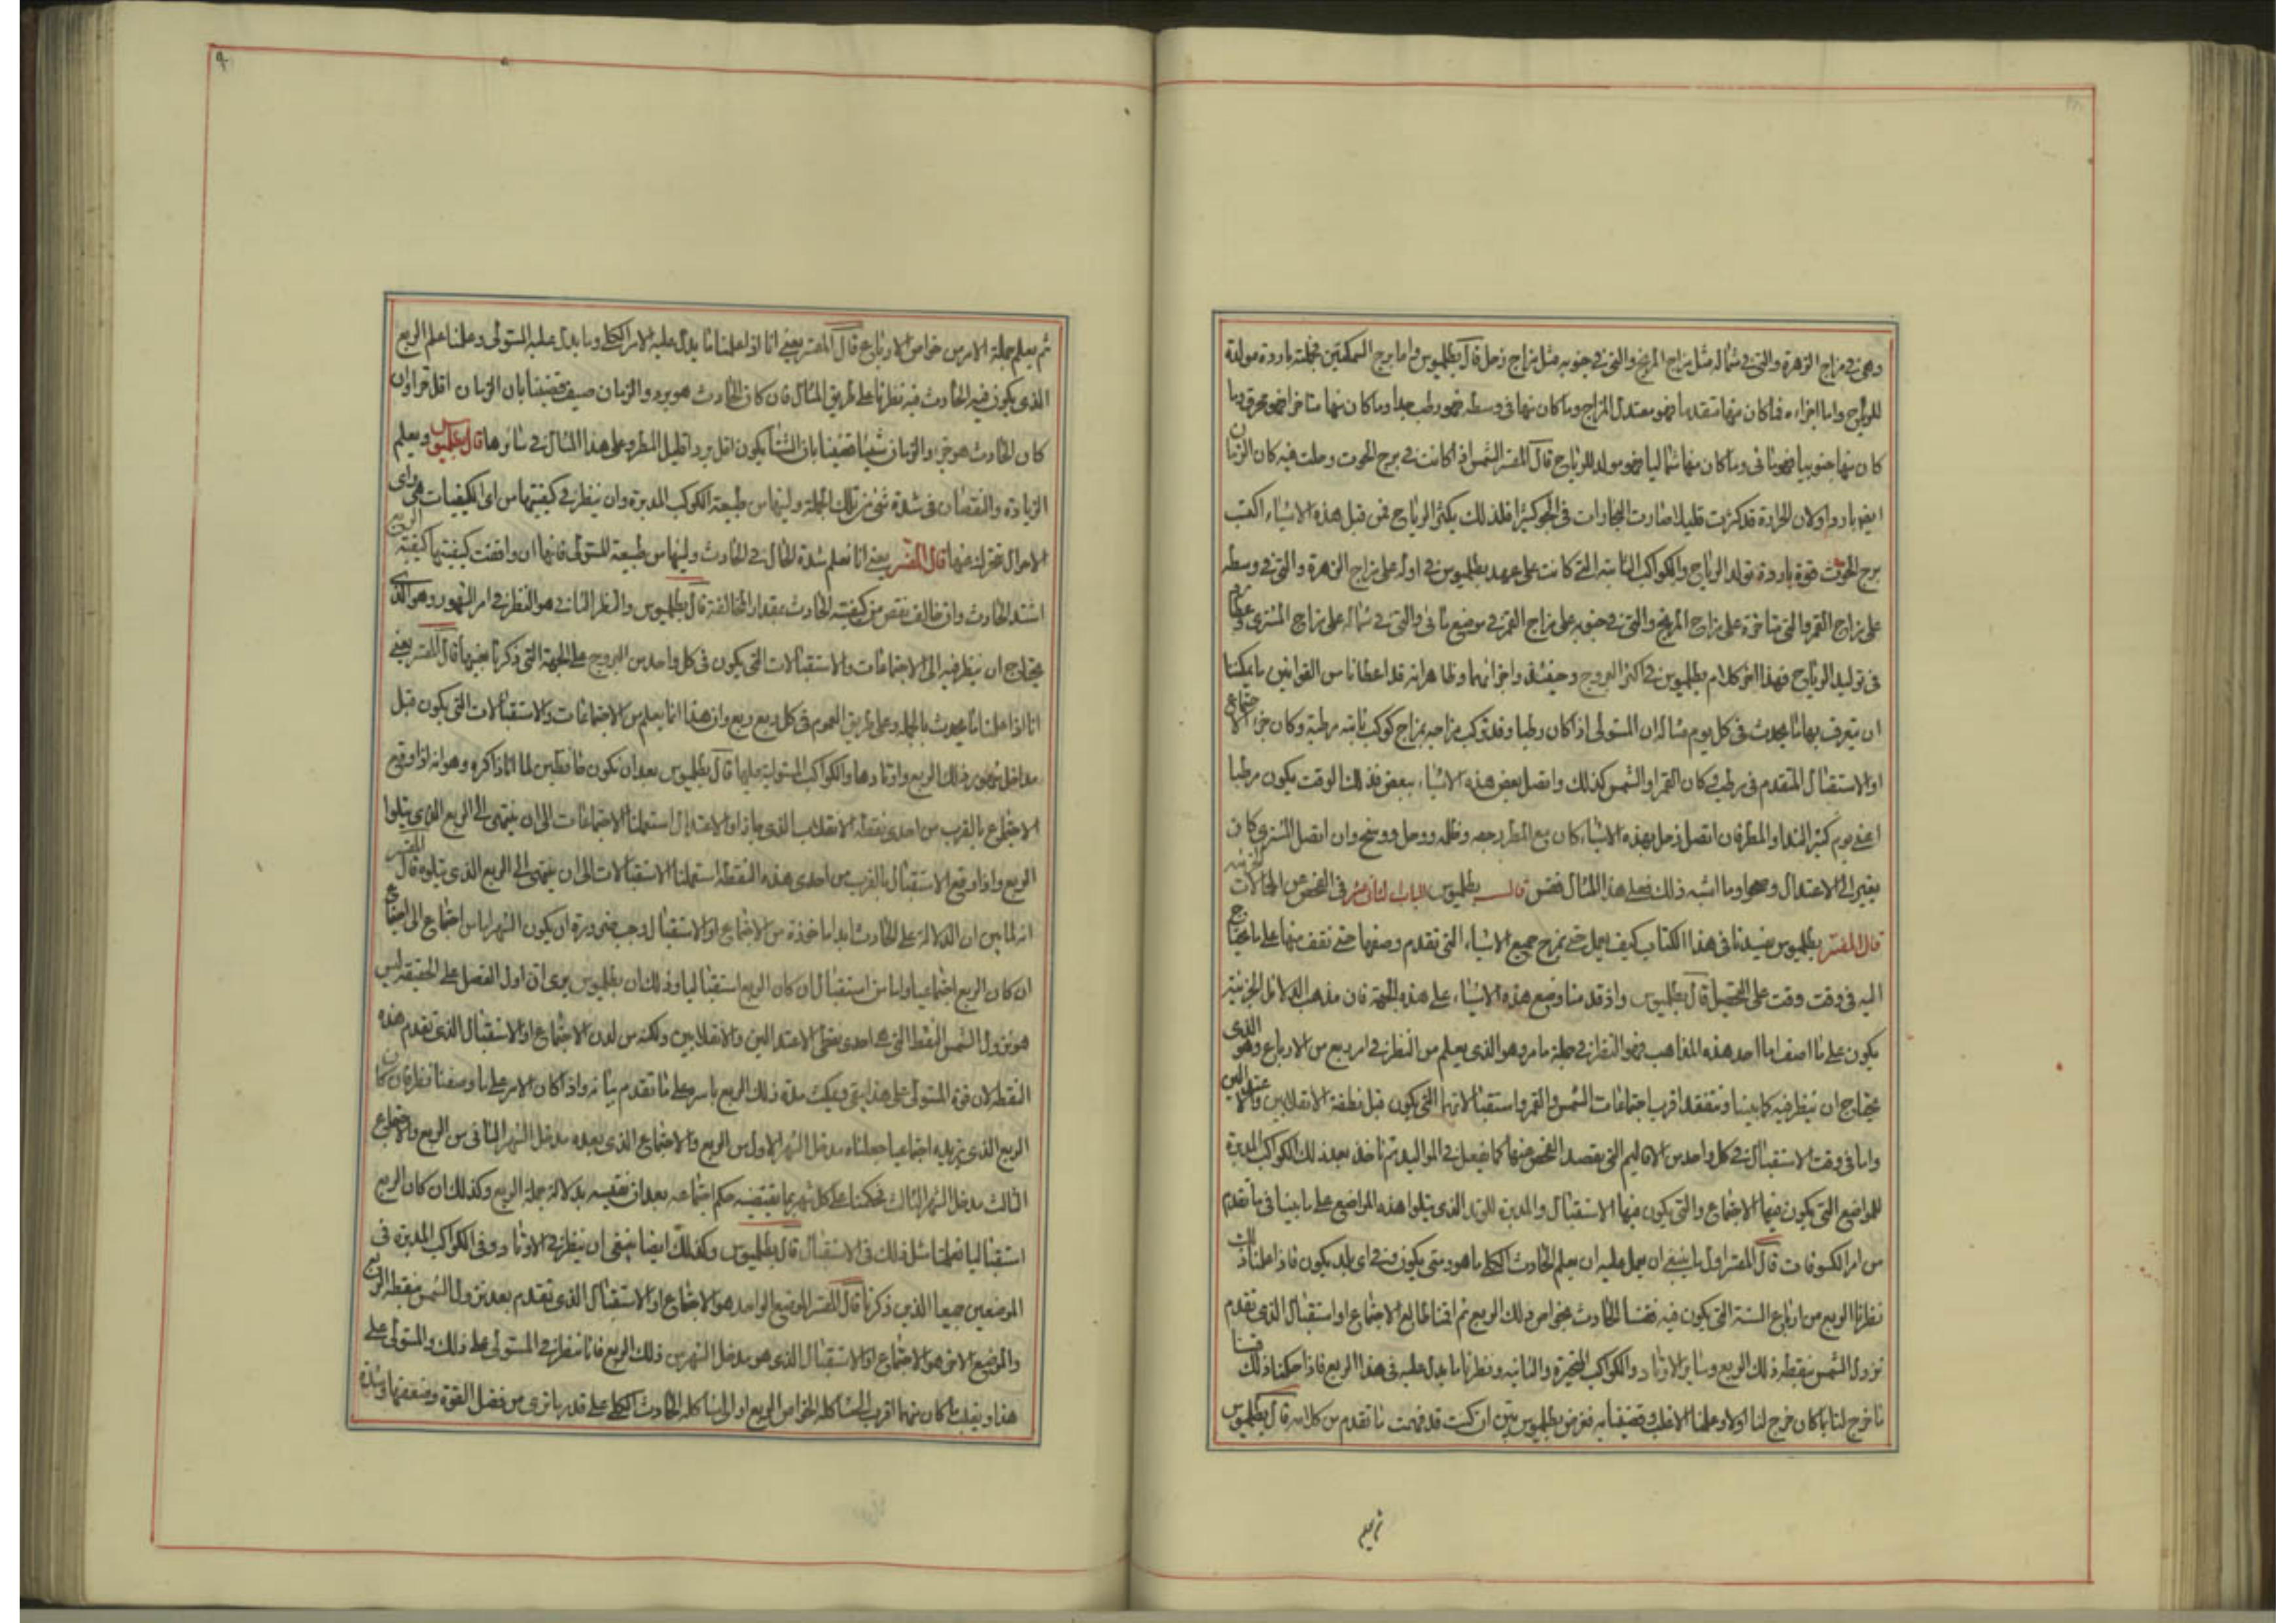 وهي في مزاج الزهرة والتي في شماله مثل مزاج المريخ والتي في جنوبه مثل مزاج زحل قال بطلميوس واما برج السمكتين فجملته باردة مولدة
للرياح واما اجزاءه فما كان منها متقدما فهو معتدل المزاج وما كان منها في وسطه فهو رطب جدا وما كان منها متاخرا فهو محرق وما
كان منها جنوبيا فهو مائى وما كان منها شماليا فهو مولد للرياح قال المفسر الشمس اذا كانت في برج الحوت وحلت فيه كان الزمان
ايضا باردا ولان الحرارة قد كثرت قليلا صارت البخارات في الجو كثيرا فلذلك يكثر الرياح فمن قبل هذه الاشياء اكتسب
برج الحوت قوة باردة تولد الرياح والكواكب الثابتة التي كانت على عهد بطلميوس في اوله على مزاج الزهرة والتي في وسطه
على مزاج القمر والتي متاخرة على مزاج المريخ والتي في جنوبه على مزاج القمر في موضع مائى والتي في شماله على مزاج المشترى وعطارد
في توليد الرياح فهذا اخر كلام بطلميوس في اكثر البروج وحينئذ واجزائها وظاهر انه قد اعطانا من القوانين ما يمكننا
ان نتعرف بها ما يحدث في كل يوم مثاله ان المستولى اذا كان رطبا وقد تركب مزاجه بمزاج كوكب ثابته مرطبة وكان جزء الاجتماع
او الاستقبال المتقدم في مرطب وكان القمر او الشمس كذلك واتصل بعض هذه الاشياء ببعض فذلك الوقت يكون مرطبا
اعنى يوم كثير الندا والمطر فان اتصل زحل بهذه الاشياء كان مع المطر وظلمه ووحل ووسخ وان اتصل المشترى كان
يغير الى الاعتدال وصحو وما اشبه ذلك فعلى هذا المثال فقس قال بطلميوس الباب الثانى عشر في الفحص عن الحالات الجزئية
قال المفسر بطلميوس يفيدنا في هذا الكتاب كيف نعمل حتى نمزج جميع الاشياء التي تقدم وصفها حتى نقف منها على ما يحتاج
اليه في وقت وقت على التحصيل قال بطلميوس واذ قدمنا وضع هذه الاشياء على هذه الجهة فان مذهب الدلائل الجزئية
يكون على ما اصف اما احد هذه المذاهب فهو النظر في جملة ما مر وهو الذى يعلم من النظر في امر ربع من الارباع وهو الذى
يحتاج ان ينظر فيه كما بينا ونتفقد اقرب اجتماعات الشمس والقمر واستقبالاتها التي يكون قبل نطقة الانقلابين والاعتدالين
واما في وقت الاستقبال في كل واحد من الاقاليم التي يقصد الفحص عنها كما نفعل في المواليد ثم ناخذ بعد ذلك الكواكب المدبرة
للمواضع التي يكون فيها الاجتماع والتي يكون فيها الاستقبال والمدبرة للوتد الذى يتلوا هذه المواضع على ما بينا فى ما تقدم
من امر الكسوفات قال المفسر اول ما ينبغى ان نعمل عليه ان نعلم الحادث الكلى ما هو ومتى يكون وفي اى بلد يكون فاذا علمنا ذلك
نظرنا الربع من ارباع السنة التي يكون فيه فقسنا الحادث بخواص ذلك الربع ثم اقمنا طالع الاجتماع او استقبال الذى تقدم
نزول الشمس بنقطة ذلك الربع وساير الاوتاد والكواكب المتحيرة والثابتة ونظرنا ما يدل عليه في هذا الربع فاذا حكمنا ذلك
ما خرج لنا بما كان خرج لنا اولا وعلمنا الاغلب وقضينا به فغرض بطلميوس بين ان كنت قد فهمت ما تقدم من كلامه قال بطلميوس
ثم يعلم
ثم يعلم جملة الامر من خواص الارباع قال المفسر يعنى انا اذا علمنا ما يدل عليه الامر الكلى وما يدل عليه المستولى وعلمنا علم الربع
الذى يكون فيه الحادث فيه نظرنا على طريق المثال فان كان الحادث هو برد والزمان صيف قضينا بان الزمان اقل حرا وان
كان الحادث هو حر والزمان شتيا قضينا بان الشتا يكون اقل بردا قليل المطر وعلى هذا المثال في سائرها قال بطلميوس ويعلم
الزيادة والنقصان في شدة شئ من تلك الجملة ولينها من طبيعة الكوكب المدبرة وان ينظر في كيفيتها من اى الكيفيات هى واى
الاحوال تحرك منها قال المفسر يعنى انا نعلم شدة الحال في الحادث ولينها من طبيعة المستولى فانها ان وافقت كيفيتها كيفية الربع
اشتد الحادث وان خالف نقص من كيفية الحادث بمقدار المخالفة قال بطلميوس والنظر الثانى هو النظر في امر الشهور وهو الذى
يحتاج ان ينظر فيه الى الاجتماعات والاستقبالات التي يكون في كل واحد من البروج على الجهة التي ذكرنا بعينها قال المفسر يعنى
انا اذا علمنا ما يحدث بالجملة وعلى طريق العموم في كل ربع ربع وان هذا انما يعلم من الاجتماعات والاستقبالات التي يكون قبل
مداخل شهور ذلك الربع واوتادها والكواكب المستولية عليها قال بطلميوس بعد ان نكون حافظين لما انا ذاكره وهو انه اذا وقع
الاجتماع بالقرب من احدى نقطة الانقلاب الذى جاز او الاعتدال استعملنا الاجتماعات الى ان ينتهى الى الربع الذى يتلوا
الربع واذا وقع الاستقبال بالقرب من احدى هذه النقطة استعملنا الاستقبالات الى ان ينتهى الى الربع الذى يتلوه قال المفسر
انه لما بين ان الدلالة على الحادث ابدا ماخوذة من الاجتماع او الاستقبال وجب ضرورة ان يكون الشهر اما من اجتماع الى اجتماع
ان كان الربع اجتماعيا واما من استقبال ان كان الربع استقباليا وذلك ان بطلميوس يرى ان اول الفصل على الحقيقة ليس
هو نزول الشمس النقط التي هى احدى نقطى الاعتدالين والانقلابين ولكنه من لدن الاجتماع او الاستقبال الذى تقدم هذه
النقطة لان قوة المستولى على هذا يبقى ويمكث مدة ذلك الربع باسره على ما تقدم بيانه واذا كان الامر على ما وصفنا نظر فان كان
الربع الذى نريد اجتماعيا جعلناه مدخل الشهر الاول من الربع والاجتماع الذى بعده مدخل الشهر الثانى من الربع والاجتماع
الثالث مدخل الشهر الثالث فحكمنا على كل شهر بما يقتضيه حكم اجتماعه بعد ان نقيسه بدلالة جملة الربع وكذلك ان كان الربع
استقباليا فعلنا مثل ذلك في الاستقبال قال بطلميوس وكذلك ايضا ينبغى ان ينظر في الاوتاد وفي الكواكب المدبرة في
الموضعين جميعا الذين ذكرنا قال المفسر الموضع الواحد هو الاجتماع او الاستقبال الذى تقدم بعد نزول الشمس بنقطة الربع
والموضع الاخر هو الاجتماع او الاستقبال الذى هو مدخل الشهر من ذلك الربع فانا ننظر في المستولى على ذلك والمستولى على
هذا ويغلب ما كان منهما اقرب المشاكلة الخواص الربع او الى مشاكله الحادث الكلى على قدر ما نرى من فضل القوة وضعفها وشدة